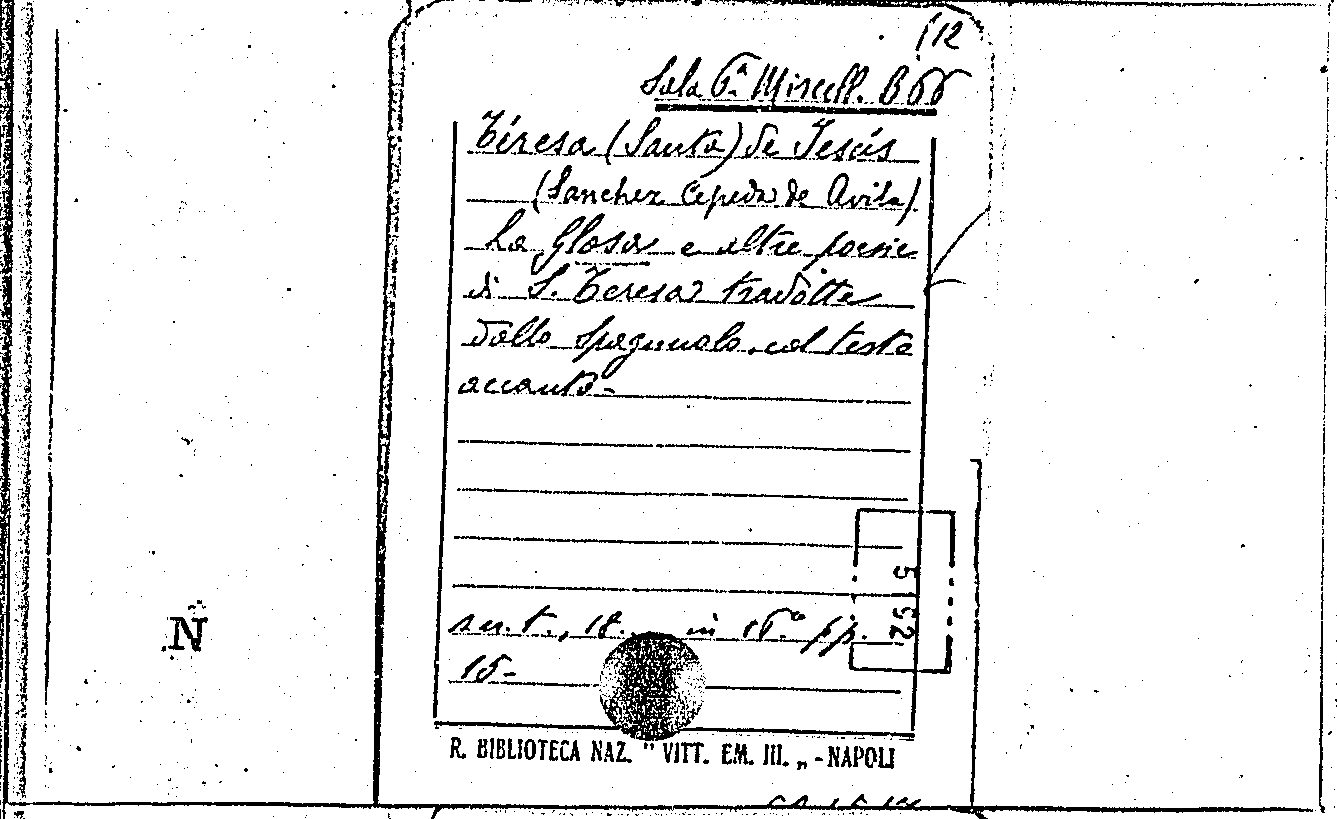 112
Sala 6.ª Miscell. B 66
Teresa (Santa) de Jesús
(Sanchez Cepeda de Avila)
La Glosa e altre poesie
di S. Teresa tradotte
dallo spagnuolo, col testo
accanto-
s. n. t., 18.. in 16.º pp.
15-
5 52
N
R. BIBLIOTECA NAZ. " VITT. EM. III. „ - NAPOLI